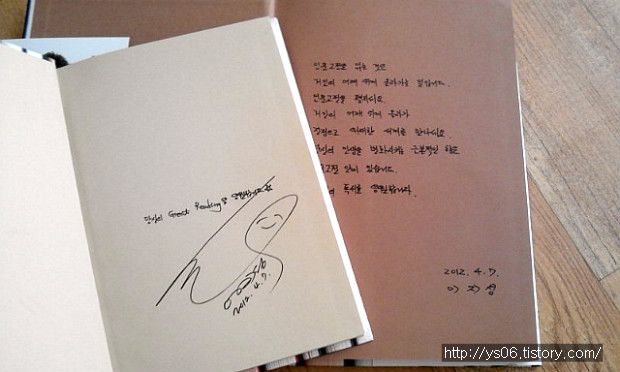 당신의 Great Reading을 응원합니다
2012. 4. 7.
인문고전을 읽는 것은
거인의 어깨 위에 올라가는 일입니다.
인문고전을 펼치십시오.
거인의 어깨 위에 올라가
위대한 세계를 만나십시오.
당신의 인생을 변화시키는 근본적인 힘은
고전 안에 있습니다.
독서를 응원합니다.
2012. 4. 7.
이 지 성
http://ys06.tistory.com/